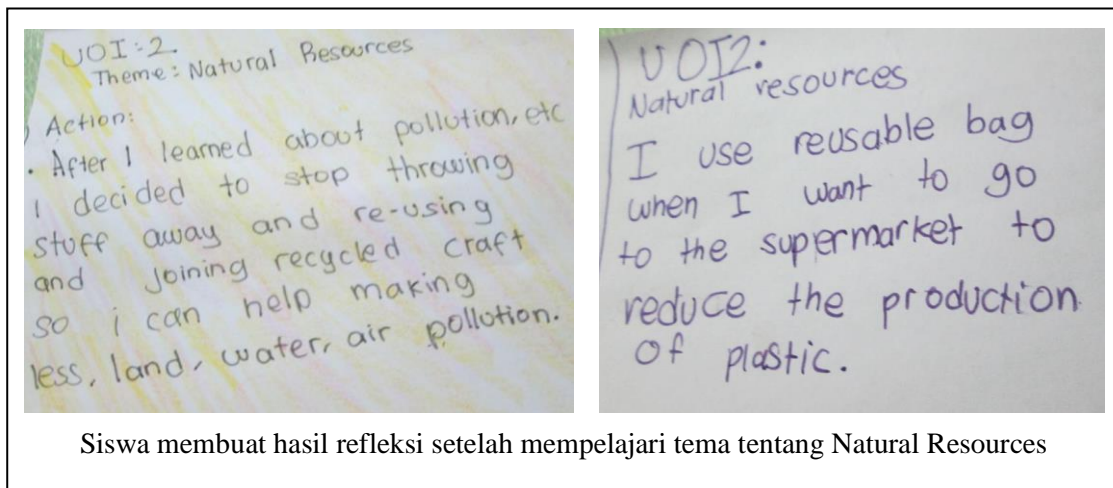 UOI:2.
Theme: Natural Resources
Action:
. After I learned about pollution, etc
I decided to stop throwing
stuff away and re-using
and joining recycled craft
so i can help making
less, land, water, air pollution.
UOI2:
Natural resources
I use reusable bag
when I want to go
to the supermarket to
reduce the production
Of plastic.
Siswa membuat hasil refleksi setelah mempelajari tema tentang Natural Resources